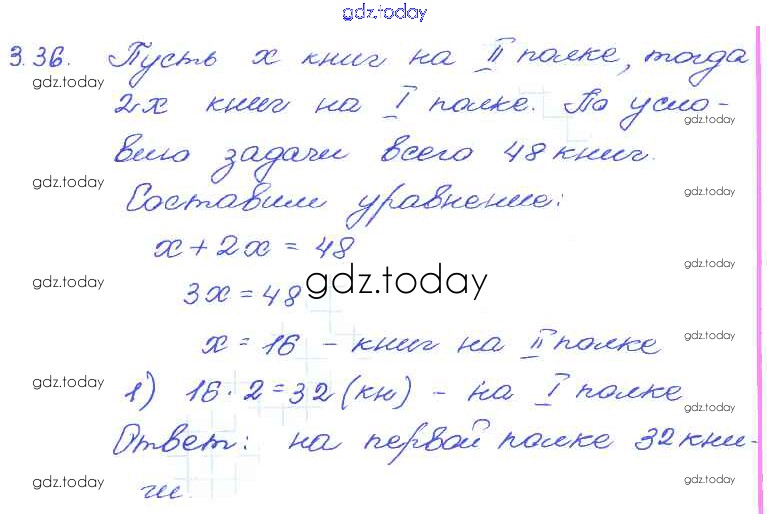 gdz.today
3.36. Пусть x книг на II полке, тогда
gdz.today
2x книг на I полке. По усло-
gdz.today
вию задачи всего 48 книг.
gdz.today
gdz.today
Составим уравнение:
x + 2x = 48
gdz.today
gdz.today
3x = 48
gdz.today
x = 16 - книг на II полке
gdz.today
gdz.today
1) 16 · 2 = 32 (кн) - на I полке
gdz.today
Ответ: на первой полке 32 кни-
gdz.today
gdz.today
ги.